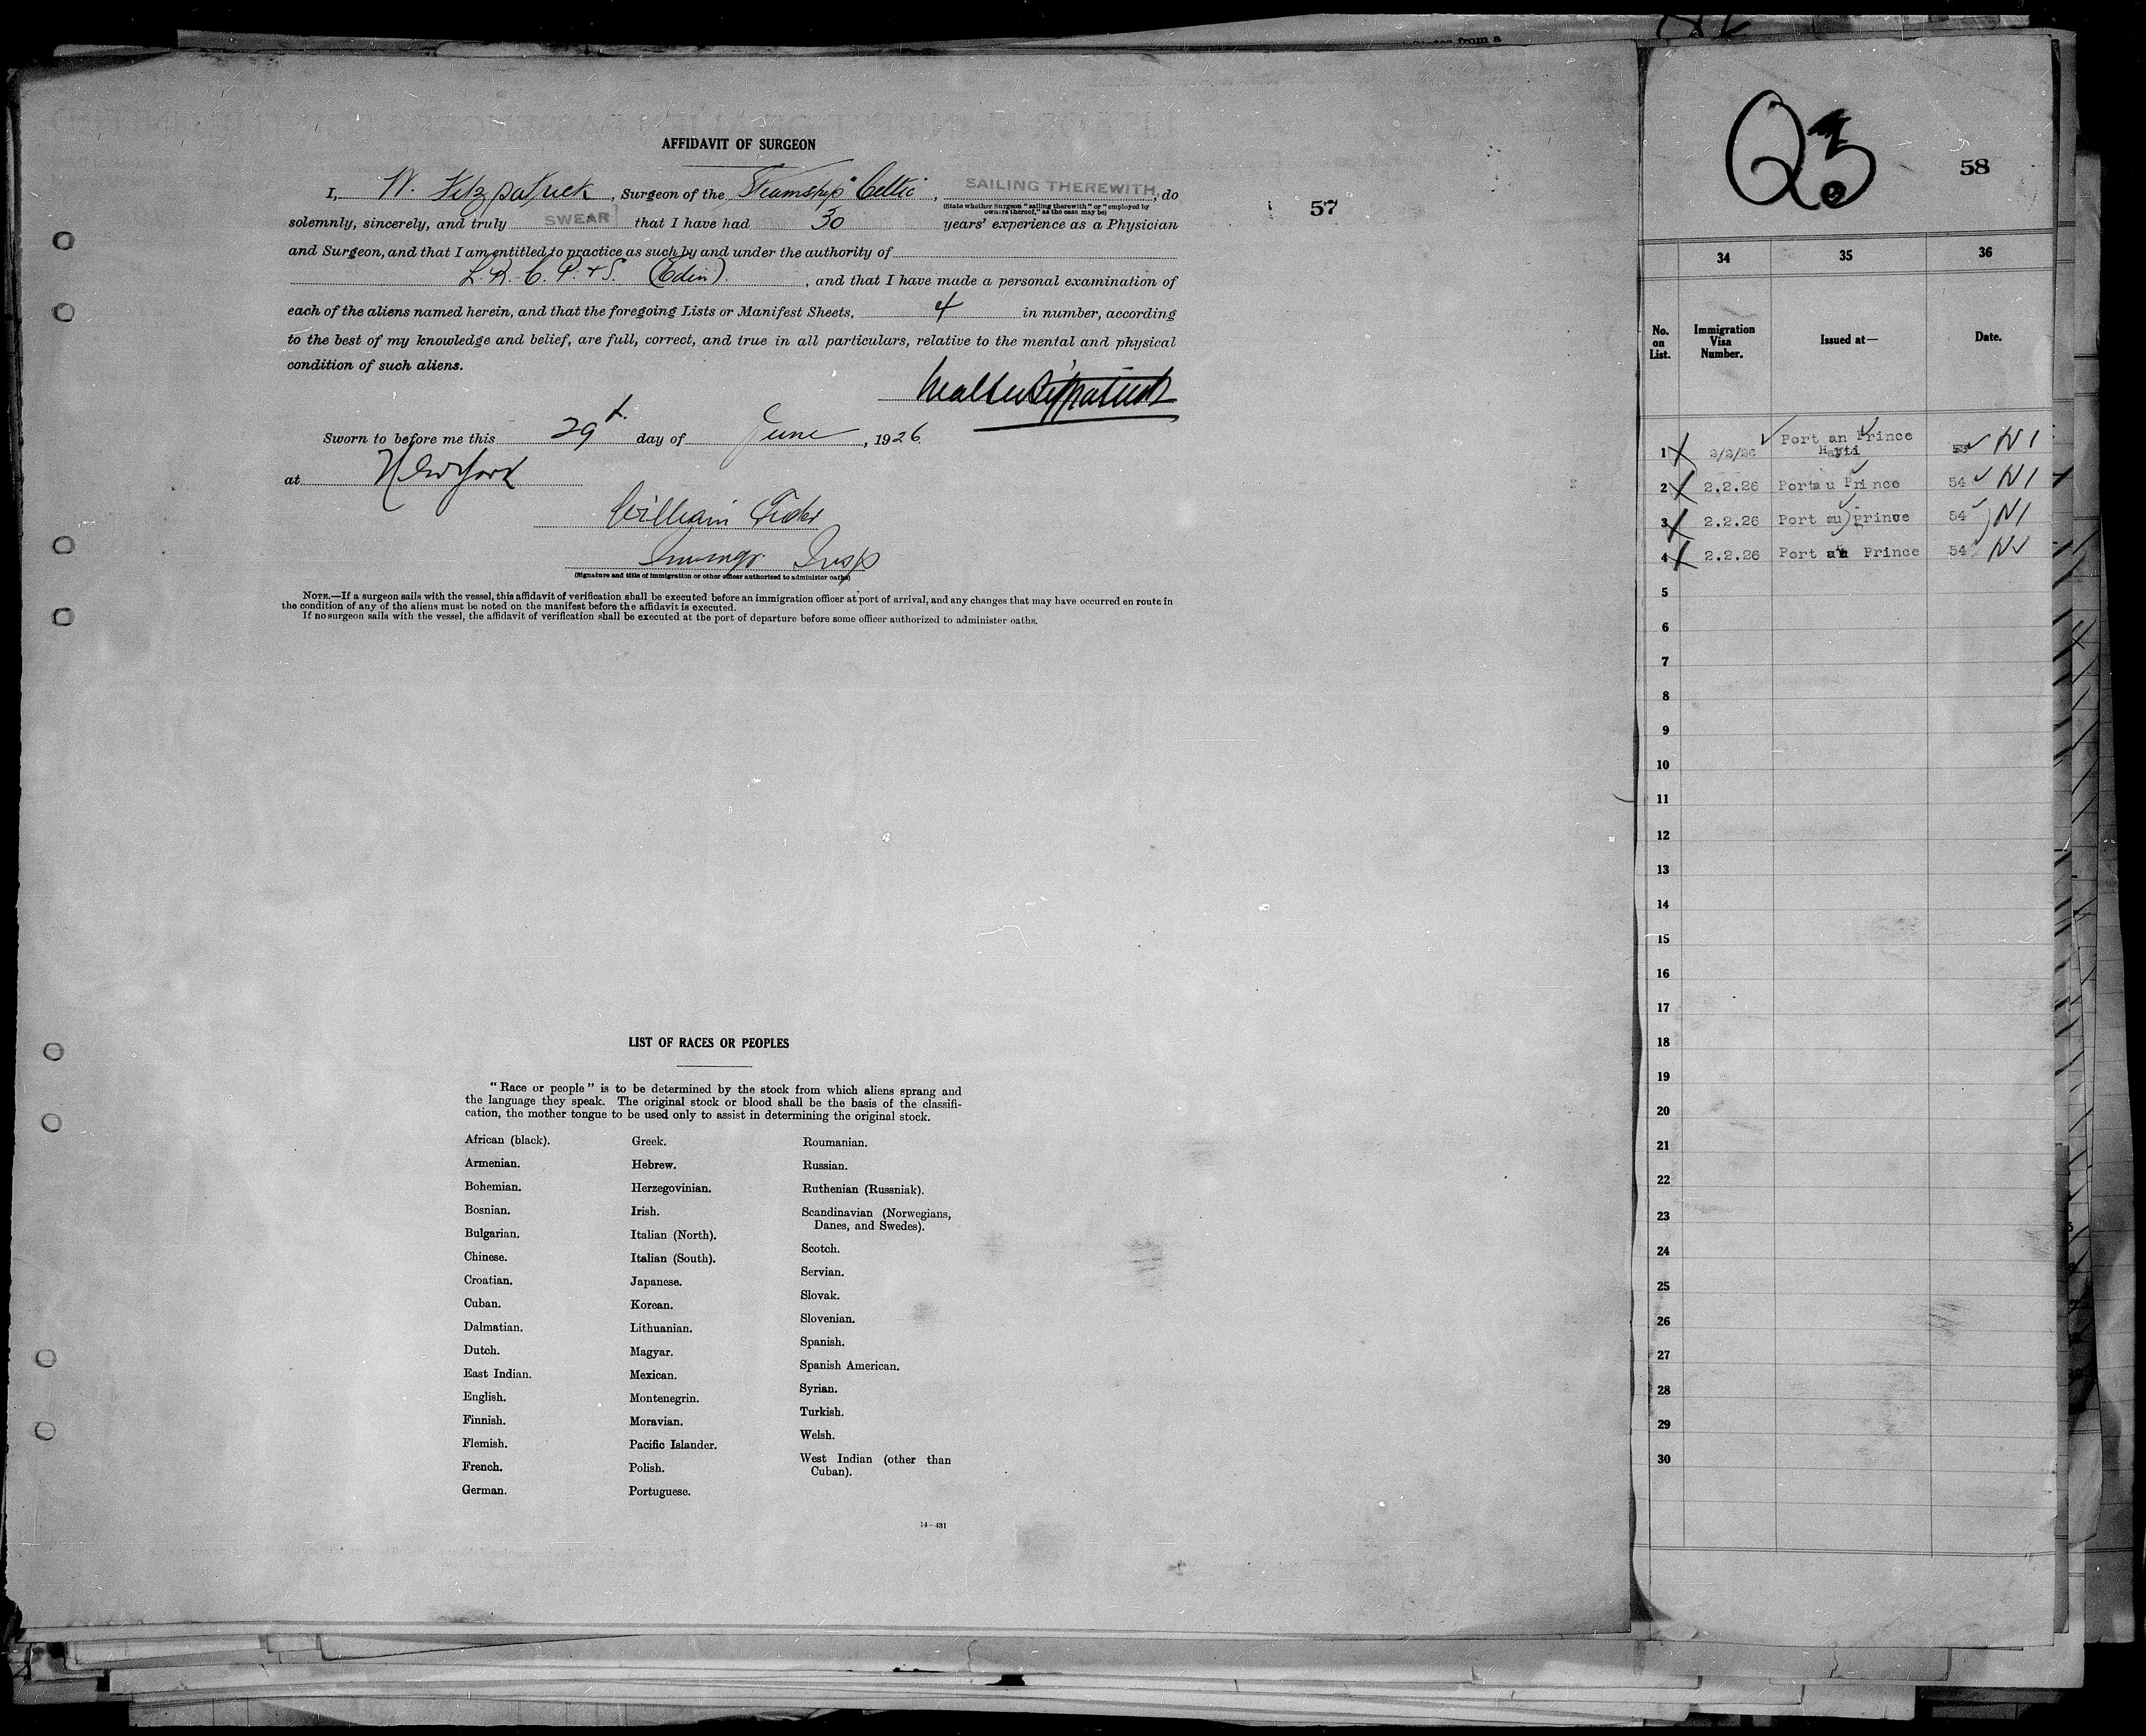 AFFIDAVIT OF SURGEON
I, W. Fitzpatrick, Surgeon of the Steamship "Celtic", SAILING THEREWITH, do
(State whether Surgeon "sailing therewith" or "employed by
owners thereof," as the case may be)
solemnly, sincerely, and truly SWEAR that I have had 30 years' experience as a Physician
and Surgeon, and that I am entitled to practice as such by and under the authority of
L. R. C. P. + S. (Edin). , and that I have made a personal examination of
each of the aliens named herein, and that the foregoing Lists or Manifest Sheets, 4 in number, according
to the best of my knowledge and belief, are full, correct, and true in all particulars, relative to the mental and physical
condition of such aliens.
Walter Fitzpatrick
Sworn to before me this 29th day of June, 1926.
at New York
William
Immgr. Insp
(Signature and title of immigration or other officer authorized to administer oaths)
NOTE.—If a surgeon sails with the vessel, this affidavit of verification shall be executed before an immigration officer at port of arrival, and any changes that may have occurred en route in
the condition of any of the aliens must be noted on the manifest before the affidavit is executed.
If no surgeon sails with the vessel, the affidavit of verification shall be executed at the port of departure before some officer authorized to administer oaths.
57
LIST OF RACES OR PEOPLES
"Race or people" is to be determined by the stock from which aliens sprang and
the language they speak. The original stock or blood shall be the basis of the classifi-
cation, the mother tongue to be used only to assist in determining the original stock.
African (black).
Armenian.
Bohemian.
Bosnian.
Bulgarian.
Chinese.
Croatian.
Cuban.
Dalmatian.
Dutch.
East Indian.
English.
Finnish.
Flemish.
French.
German.
Greek.
Hebrew.
Herzegovinian.
Irish.
Italian (North).
Italian (South).
Japanese.
Korean.
Lithuanian.
Magyar.
Mexican.
Montenegrin.
Moravian.
Pacific Islander.
Polish.
Portuguese.
Roumanian.
Russian.
Ruthenian (Russniak).
Scandinavian (Norwegians,
Danes, and Swedes).
Scotch.
Servian.
Slovak.
Slovenian.
Spanish.
Spanish American.
Syrian.
Turkish.
Welsh.
West Indian (other than
Cuban).
14—431
from a
58
34 35 36
No. on List. Immigration Visa Number. Issued at— Date.
1 2/2/26 Port an Prince Hayti 53 N I
2 2.2.26 Port au Prince 54 N I
3 2.2.26 Port au prince 54 N I
4 2.2.26 Port an Prince 54
5
6
7
8
9
10
11
12
13
14
15
16
17
18
19
20
21
22
23
24
25
26
27
28
29
30